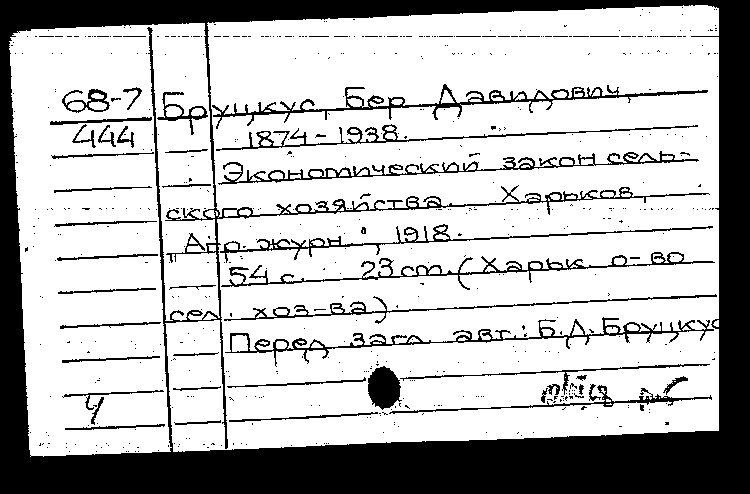 68-7 Бруцкус, Бер Давидович,
444 1874-1938.
Экономический закон сель-
ского хозяйства. Харьков,
„Агр. журн.", 1918.
54 с. 23 см. (Харьк. о-во
сел. хоз-ва).
Перед загл. авт.: Б.Д. Бруцкус